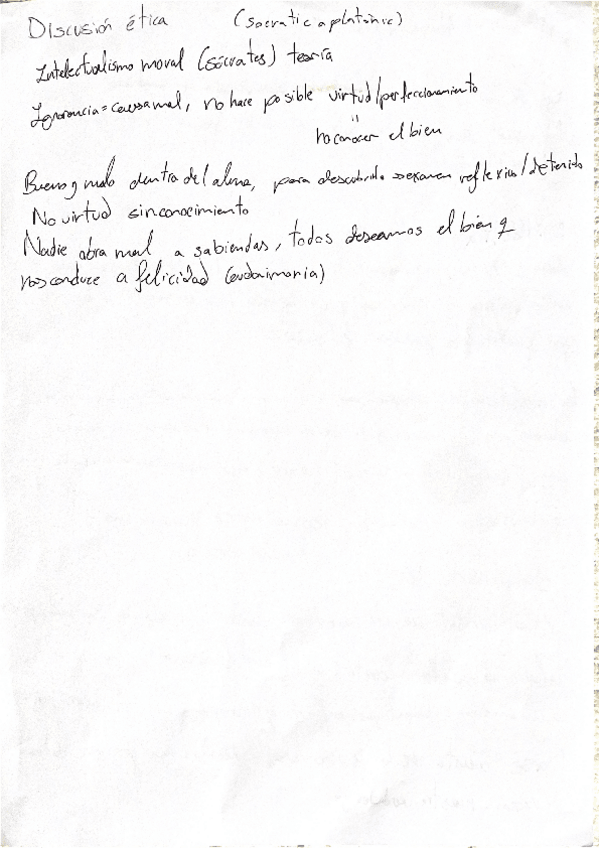 Discusión ética (socratic a platónic)
Intelectualismo moral (sócrates) teoría
Ignorancia = causa mal, no hace posible virtud/perfeccionamiento
"
no conocer el bien
Bueno y malo dentro del alma, para descubrirlo examen reflexivo/detenido
No virtud sin conocimiento
Nadie obra mal a sabiendas, todos deseamos el bien q
nos conduce a felicidad (eudaimonia)